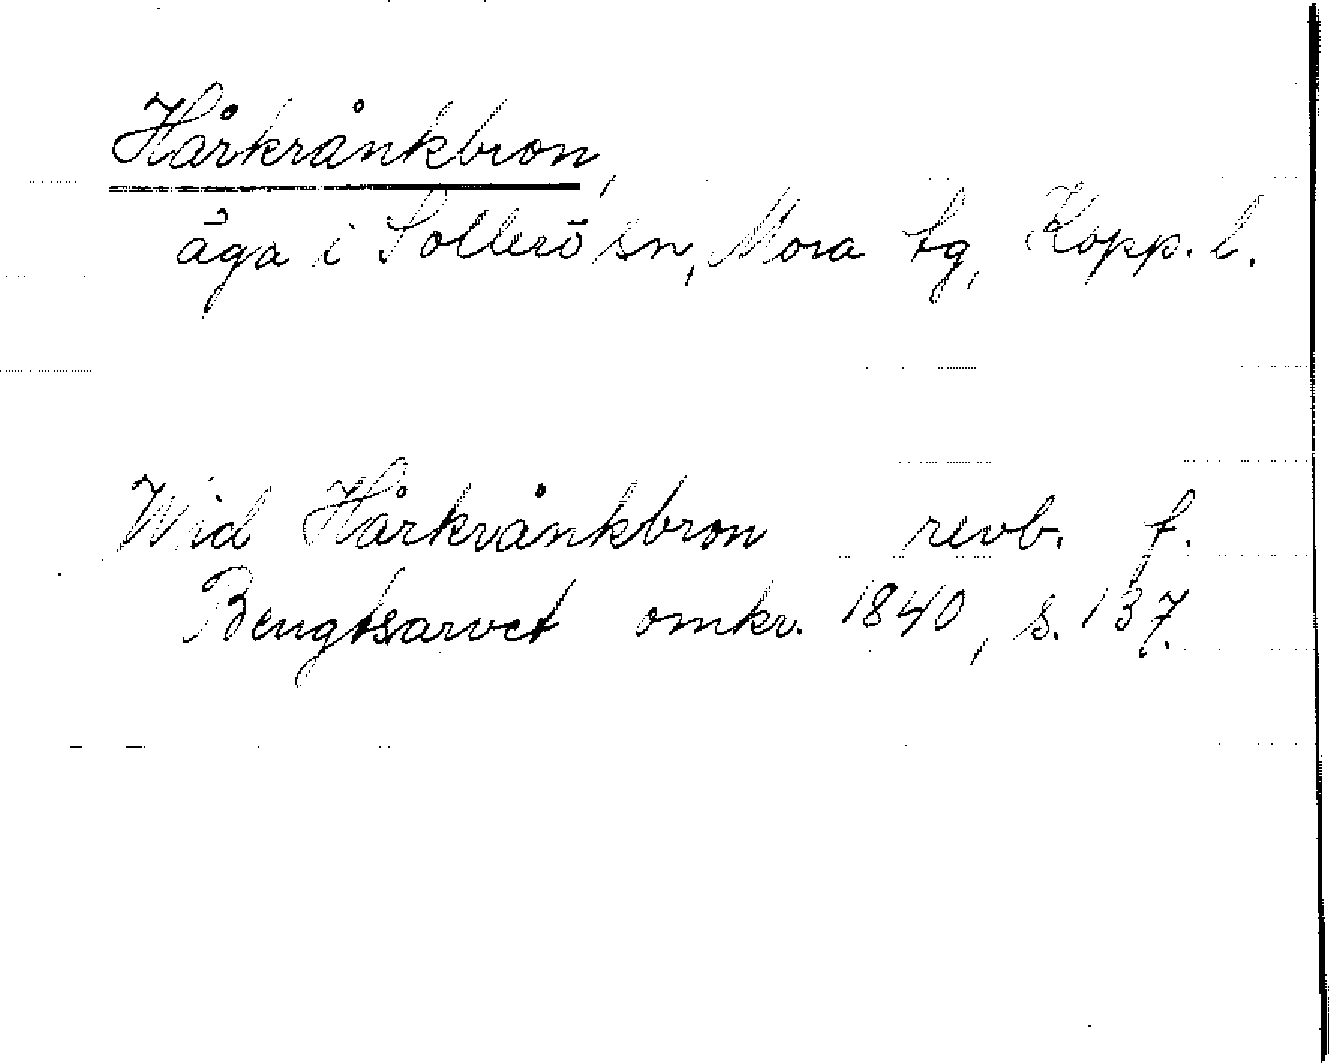 Hårkrånkbron,
äga i Sollerö sn, Mora tg, Kopp. l.
Wid Hårkrånkbron revb. f.
Bengtsarvet omkr. 1840, s. 137.